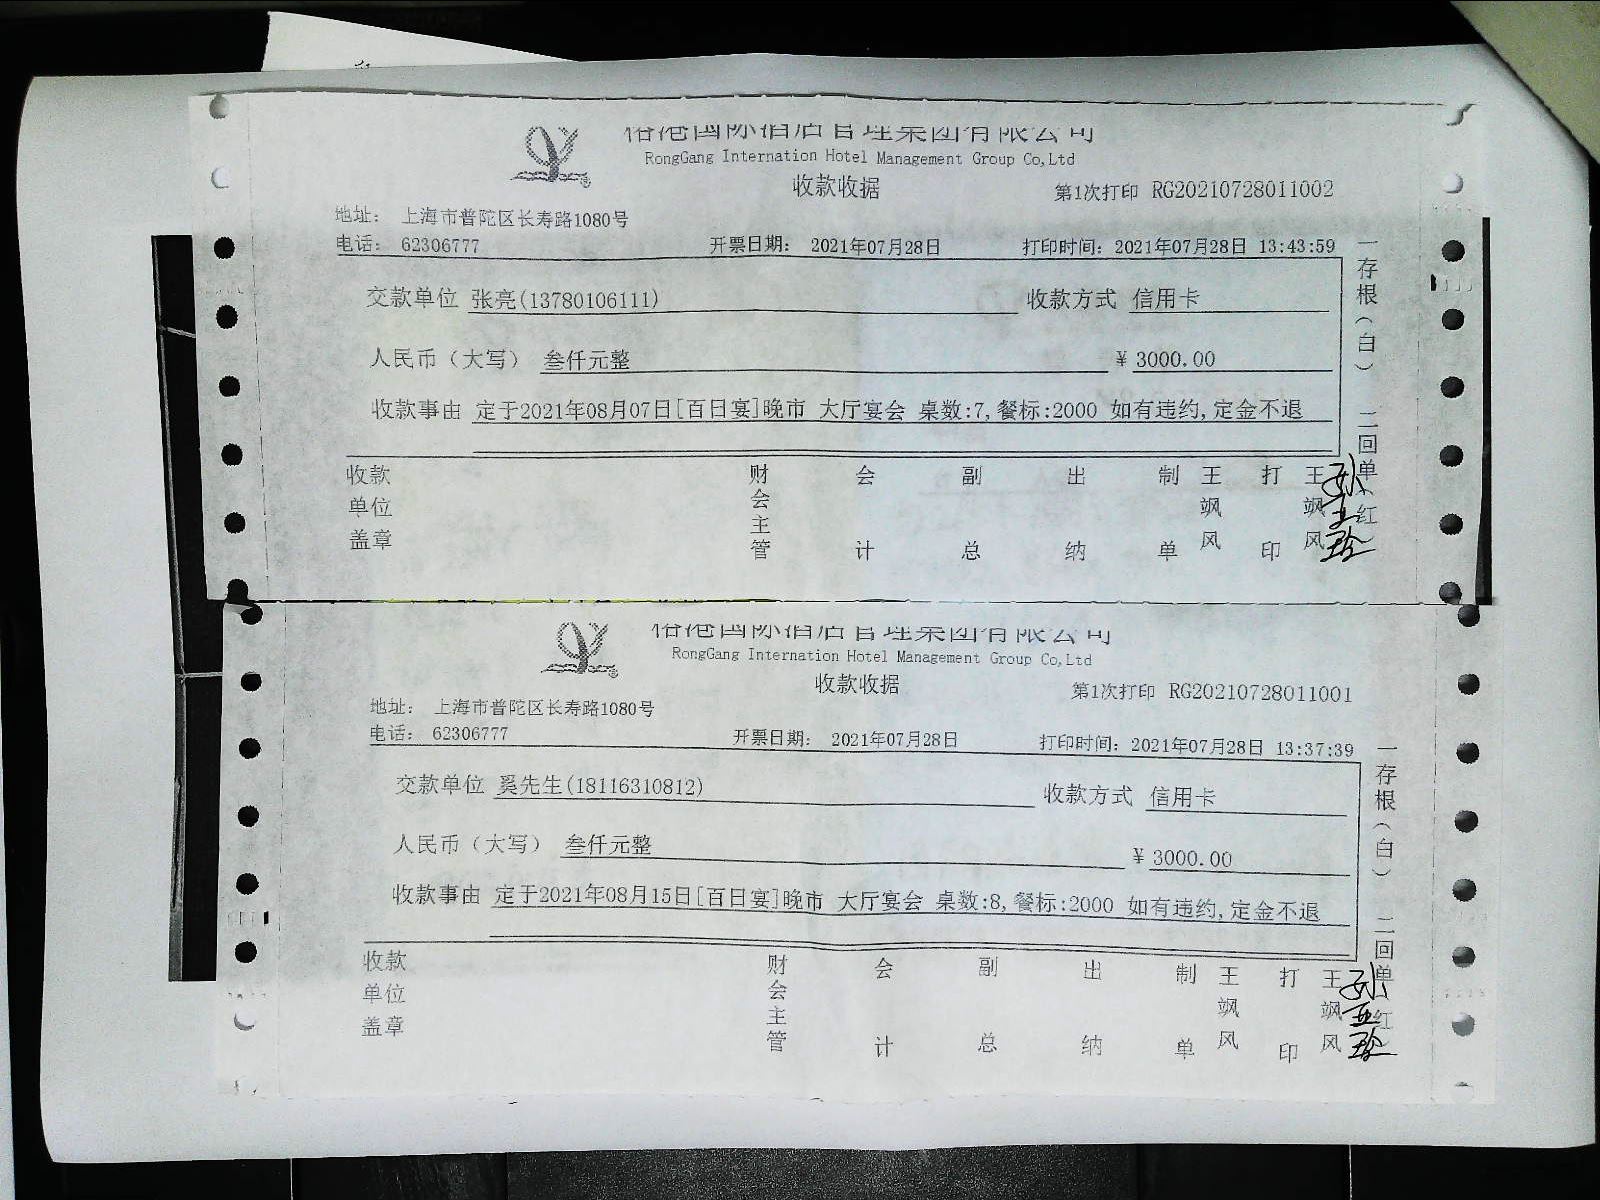 裕港国际酒店管理集团有限公司
RongGang Internation Hotel Management Group Co,Ltd
收款收据
第1次打印 RG20210728011002
地址： 上海市普陀区长寿路1080号
电话： 62306777 开票日期： 2021年07月28日 打印时间：2021年07月28日 13:43:59
交款单位 张亮(13780106111) 收款方式 信用卡
人民币（大写） 叁仟元整 ¥ 3000.00
收款事由 定于2021年08月07日[百日宴]晚市 大厅宴会 桌数:7,餐标:2000 如有违约,定金不退
收款单位盖章 财会主管 会计 副总 出纳 制单 王飒风 打印 王飒风
一存根（白） 二回单（红）
裕港国际酒店管理集团有限公司
RongGang Internation Hotel Management Group Co,Ltd
收款收据
第1次打印 RG20210728011001
地址： 上海市普陀区长寿路1080号
电话： 62306777 开票日期： 2021年07月28日 打印时间：2021年07月28日 13:37:39
交款单位 奚先生(18116310812) 收款方式 信用卡
人民币（大写） 叁仟元整 ¥ 3000.00
收款事由 定于2021年08月15日[百日宴]晚市 大厅宴会 桌数:8,餐标:2000 如有违约,定金不退
收款单位盖章 财会主管 会计 副总 出纳 制单 王飒风 打印 王飒风
一存根（白） 二回单（红）